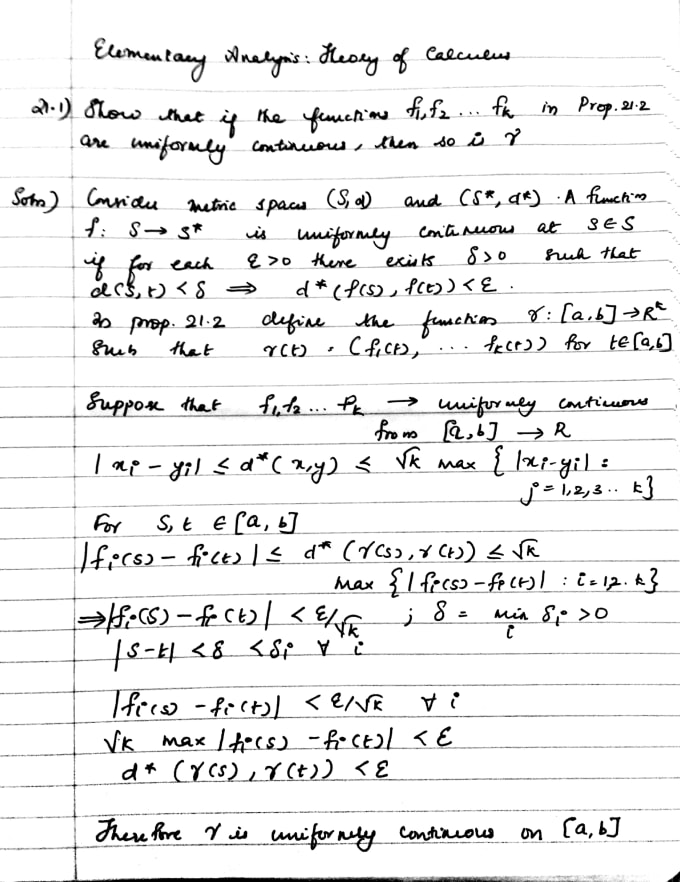 Elementary Analysis: Theory of Calculus
21.1) Show that if the functions f₁, f₂ ... fₖ in Prop. 21.2
are uniformly continuous, then so is γ
Soln) Consider metric spaces (S, d) and (S*, d*). A function
f: S → S* is uniformly continuous at s∈S
if for each ε>0 there exists δ>0 such that
d(s, t) < δ ⇒ d*(f(s), f(t)) < ε.
In prop. 21.2 define the function γ: [a,b] → Rᵏ
such that γ(t) = (f₁(t), ... fₖ(t)) for t∈[a,b]
Suppose that f₁, f₂ ... fₖ → uniformly continuous
from [a,b] → R
|xᵢ - yᵢ| ≤ d*(x,y) ≤ √k max { |xⱼ-yⱼ| :
j = 1,2,3.. k}
For s, t ∈ [a, b]
|fᵢ(s) - fᵢ(t)| ≤ d* (γ(s), γ(t)) ≤ √k
max { |fᵢ(s) - fᵢ(t)| : i = 1 2 .. k}
⇒ |fᵢ(s) - fᵢ(t)| < ε/√k ; δ = min δᵢ > 0
i
|s-t| < δ < δᵢ ∀ i
|fᵢ(s) - fᵢ(t)| < ε/√k ∀ i
√k max |fᵢ(s) - fᵢ(t)| < ε
d* (γ(s), γ(t)) < ε
Therefore γ is uniformly continuous on [a,b]